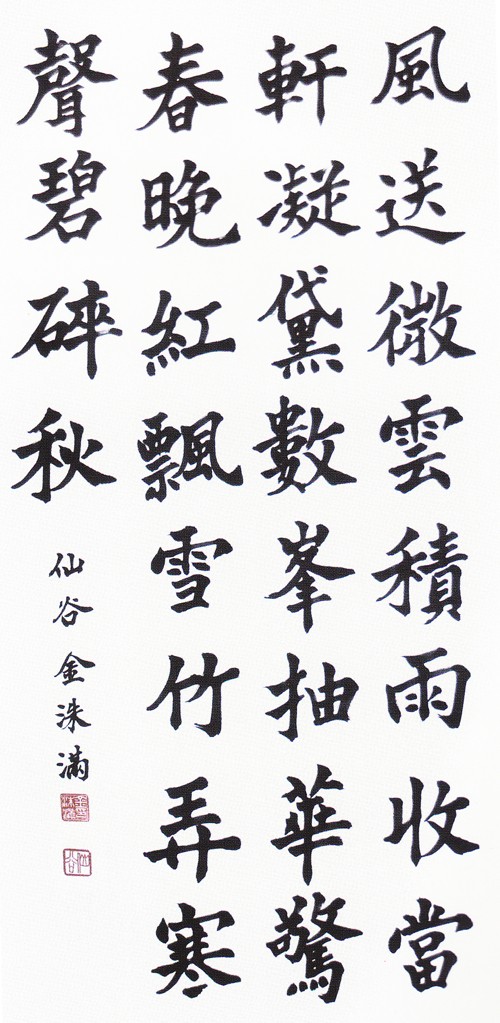 風送微雲積雨收當
軒凝黛數峯抽華驚
春晚紅飄雪竹弄寒
聲碧碎秋
仙谷金洙滿